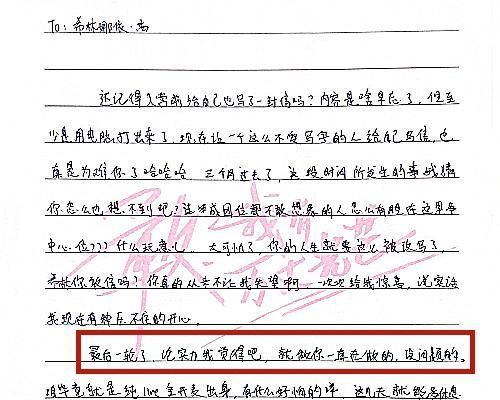 To：希林娜依·高
还记得入营前给自己也写了一封信吗？内容是啥早忘了，但至
少是用电脑打出来了，现在让一个这么不爱写字的人给自己写信，也
真是为难你了哈哈哈 三个月过去了，这段时间所发生的事我猜
你怎么也想不到吧？连成团位都不敢想象的人怎么有胆在这里争
中心位？？？什么玩意儿，太可怕了，你的人生就要这么被改写了，
希林你敢信吗？你真的从来不让我失望啊 一次次给我惊喜，说实话
我现在有种压不住的开心。
最后一轮了，论实力我觉得吧，就做你一直在做的，没问题的。
咱毕竟就是纯live全开麦出身，有什么好怕的呀